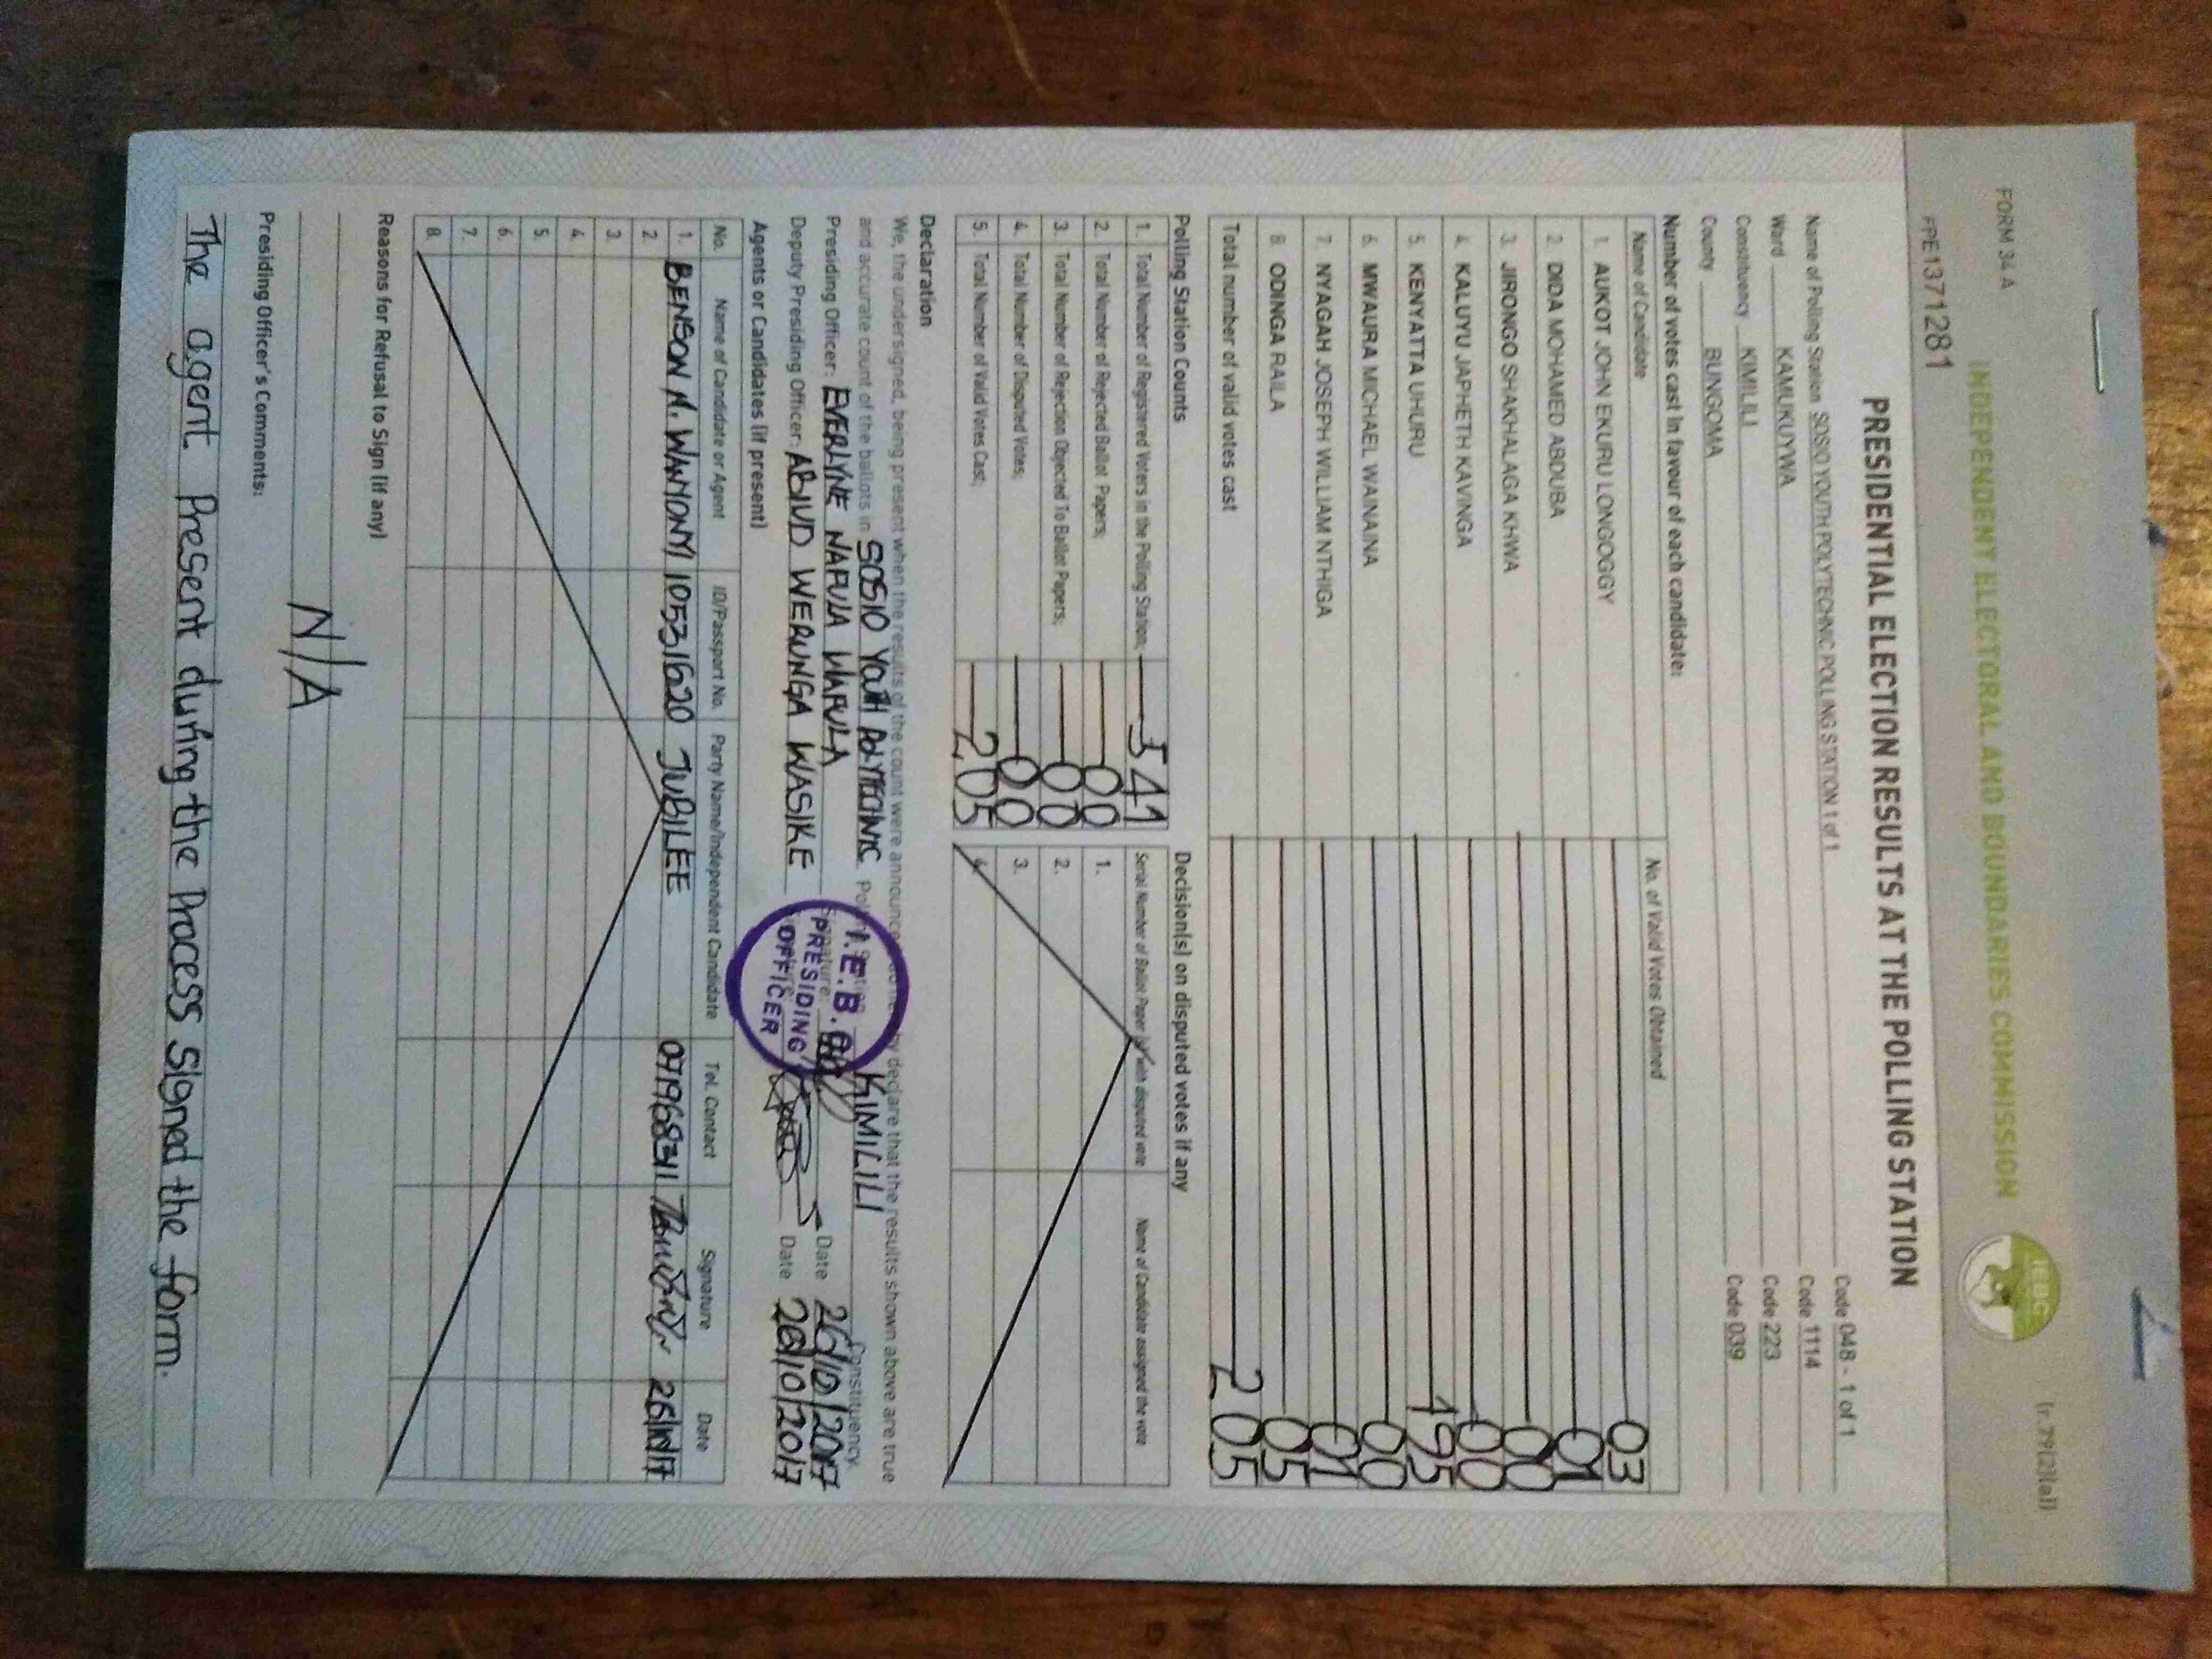 FORM 34 A
(r.79(2)(a))
INDEPENDENT ELECTORAL AND BOUNDARIES COMMISSION
IEBC
FPE1371281
PRESIDENTIAL ELECTION RESULTS AT THE POLLING STATION
Name of Polling Station SOSIO YOUTH POLYTECHNIC POLLING STATION 1 of 1 Code 048 - 1 of 1
Ward KAMUKUYWA Code 1114
Constituency KIMILILI Code 223
County BUNGOMA Code 039
Number of votes cast in favour of each candidate:
Name of Candidate No. of Valid Votes Obtained
1. AUKOT JOHN EKURU LONGOGGY 03
2. DIDA MOHAMED ABDUBA 01
3. JIRONGO SHAKHALAGA KHWA 00
4. KALUYU JAPHETH KAVINGA 00
5. KENYATTA UHURU 195
6. MWAURA MICHAEL WAINAINA 00
7. NYAGAH JOSEPH WILLIAM NTHIGA 01
8. ODINGA RAILA 05
Total number of valid votes cast 205
Polling Station Counts Decision(s) on disputed votes if any
1. Total Number of Registered Voters in the Polling Station; 541 Serial Number of Ballot Paper (s) with disputed vote Name of Candidate assigned the vote
2. Total Number of Rejected Ballot Papers; 00 1.
3. Total Number of Rejection Objected To Ballot Papers; 00 2.
4. Total Number of Disputed Votes; 00 3.
5. Total Number of Valid Votes Cast; 205 4.
Declaration
We, the undersigned, being present when the results of the count were announced, do hereby declare that the results shown above are true
and accurate count of the ballots in SOSIO YOUTH POLYTECHNIC Polling Station KIMILILI Constituency.
Presiding Officer: EVERLYNE NAFULA WAFULA Signature: Date 26/10/2017
Deputy Presiding Officer: ABIUD WERUNGA WASIKE Date 26/10/2017
I.E.B.C
PRESIDING
OFFICER
Agents or Candidates (if present)
No. Name of Candidate or Agent ID/Passport No. Party Name/Independent Candidate Tel. Contact Signature Date
1. BENSON N. WANYONYI 10531620 JUBILEE 071968311 26/10/17
2.
3.
4.
5.
6.
7.
8.
Reasons for Refusal to Sign (if any)
N/A
Presiding Officer's Comments:
The agent Present during the Process Signed the form.